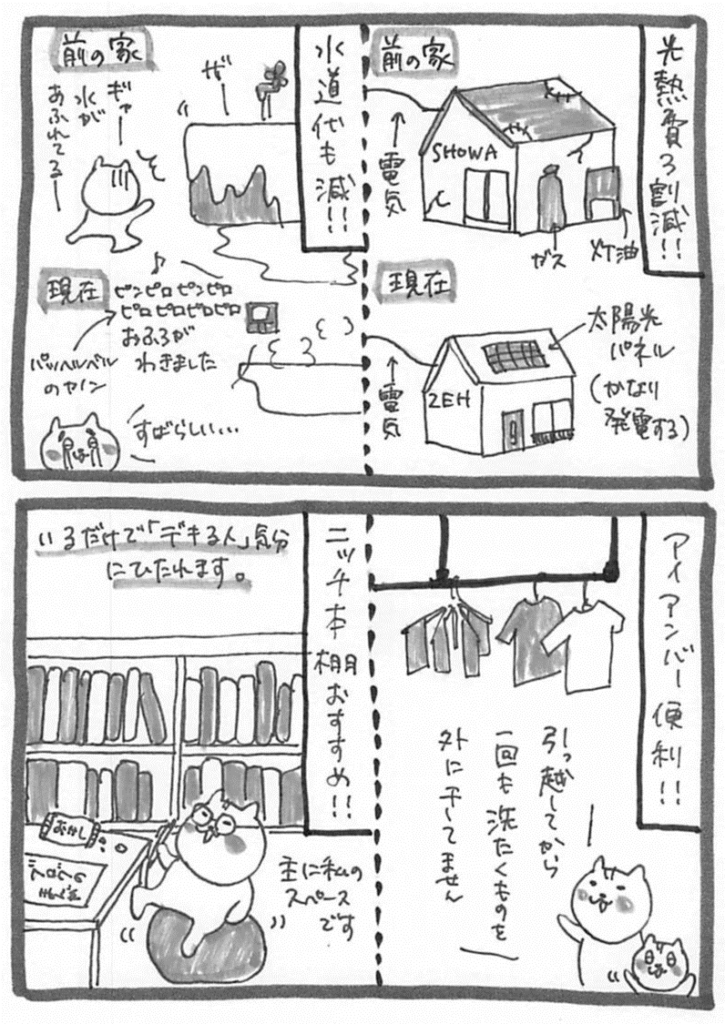 光熱費3割減!!
前の家
→電気
SHOWA
ガス
灯油
現在
→電気
ZEH
太陽光
パネル
(かなり
発電する)
水道代も減!!
前の家
ザー
ギャー
水が
あふれてるー
現在
♪
ピンピロピンピロ
ピロピロピロピロ
おふろが
わきました
パッヘルベル
のカノン
すばらしい...
アイアンバー便利!!
引っ越してから
一回も洗たくものを
外に干してません
ニッチ本棚おすすめ!!
いるだけで「デキる人」気分
にひたれます。
おかし
主に私の
スペース
です